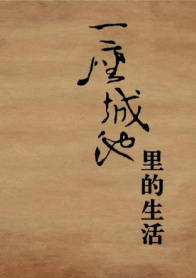 一座城池
里的生活